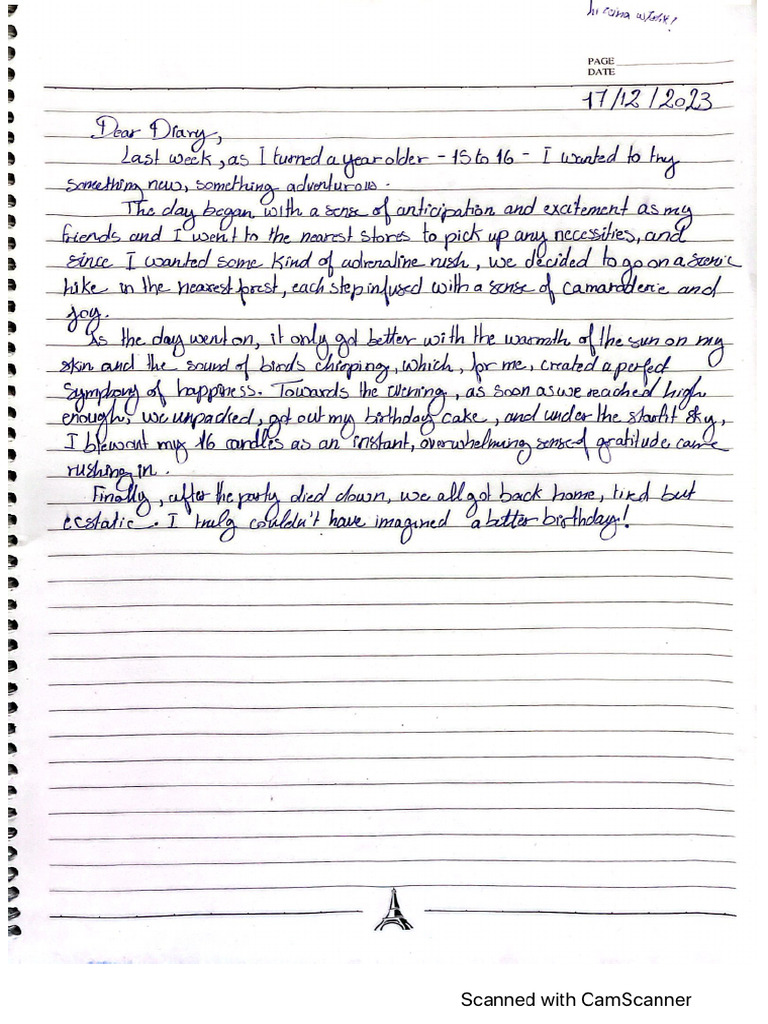 PAGE
DATE
17/12/2023
Dear Diary,
Last week, as I turned a year older - 15 to 16 - I wanted to try
something new, something adventurous.
The day began with a sense of anticipation and excitement as my
friends and I went to the nearest stores to pick up any necessities, and
since I wanted some kind of adrenaline rush, we decided to go on a scenic
hike in the nearest forest, each step infused with a sense of camaraderie and
joy.
As the day went on, it only got better with the warmth of the sun on my
skin and the sound of birds chirping, which, for me, created a perfect
symphony of happiness. Towards the evening, as soon as we reached high
enough, we unpacked, got out my birthday cake, and under the starlit sky,
I blew out my 16 candles as an instant, overwhelming sense of gratitude came
rushing in.
Finally, after the party died down, we all got back home, tired but
ecstatic. I truly couldn't have imagined a better birthday!
Scanned with CamScanner